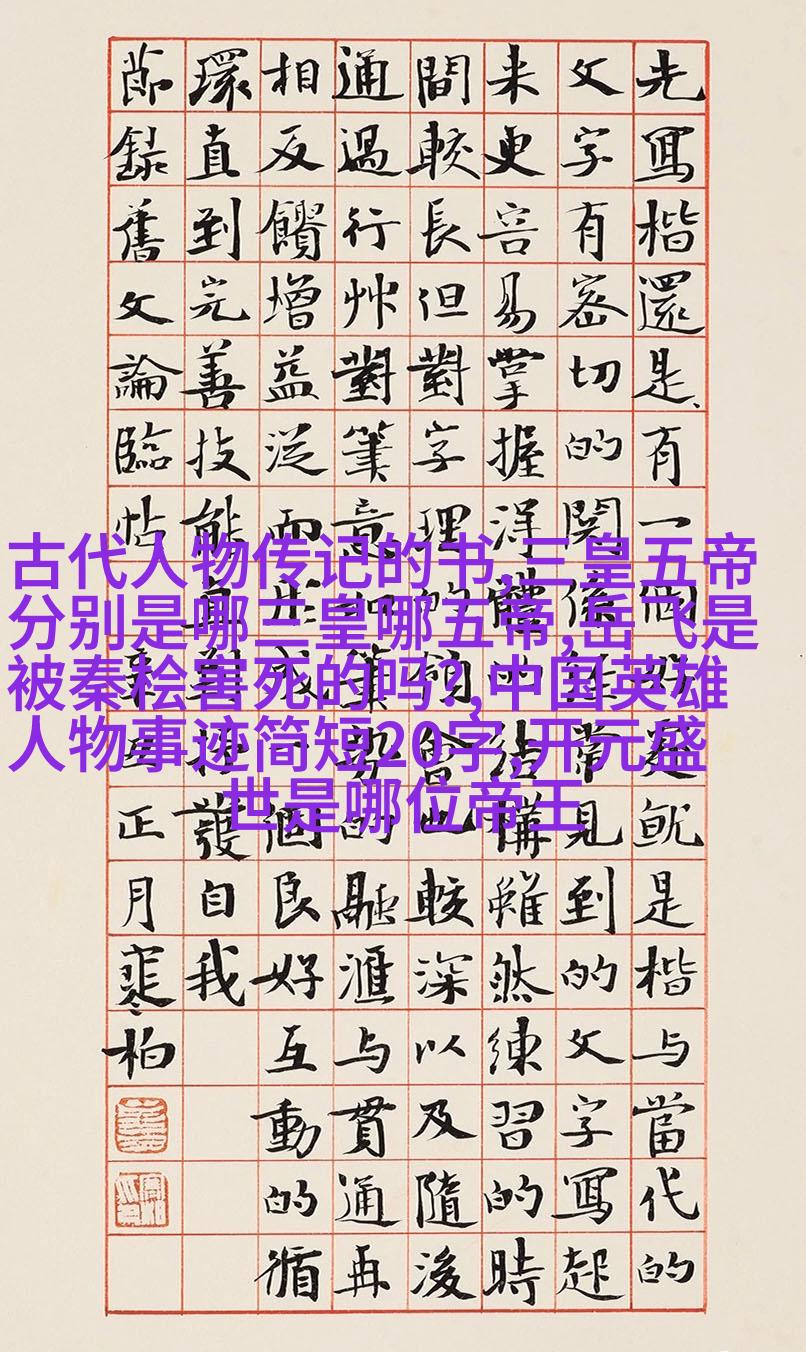 古代人物传记的书,三皇五帝
分别是哪三皇哪五帝,岳飞是
被秦桧害死的吗?,中国英雄
人物事迹简短20字,开元盛
世是哪位帝王
先寫楷還是有一個好處就是楷与當代的
文字有密切的関係經常見到的文字寫起
来更容易掌握淂體的结構雖然練習的時
間較長但對字理的領會也較深以及隨後
通過行艸對筆意和筆勢的融滙与貫通再
相反饋增益從而形成一個良好互動的循
環直到完善技能且對發自我
節録舊文論臨帖辛丑正月寒柏